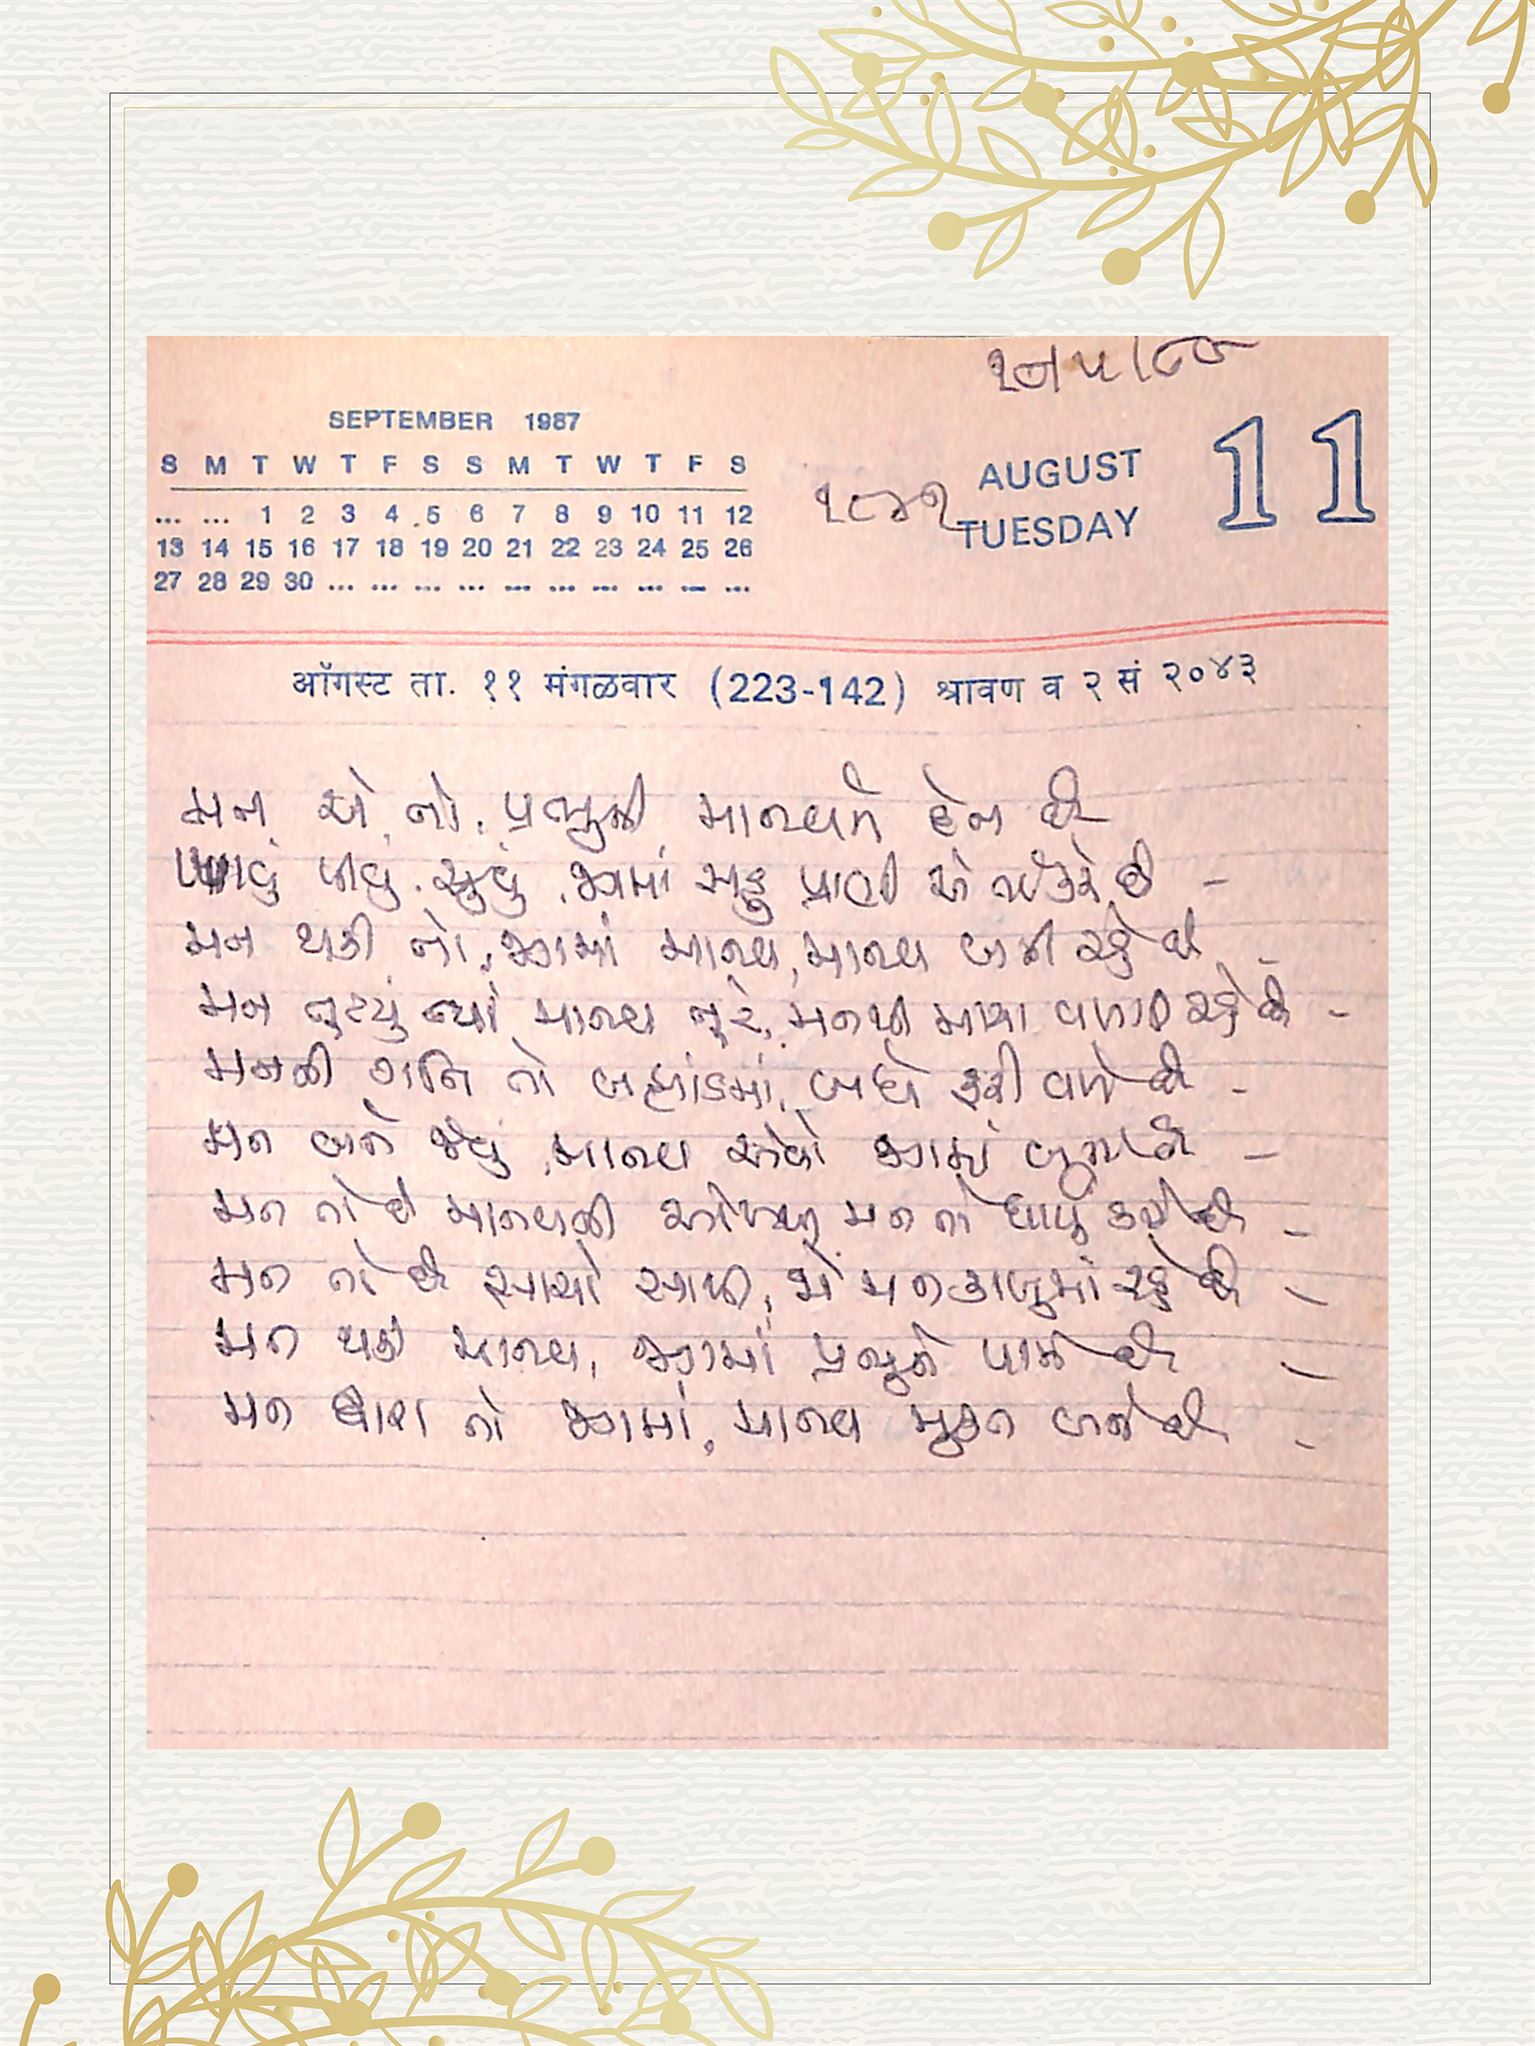 SEPTEMBER 1987
S M T W T F S S M T W T F S
... ... 1 2 3 4 5 6 7 8 9 10 11 12
13 14 15 16 17 18 19 20 21 22 23 24 25 26
27 28 29 30 ... ... ... ... ... ... ... ... ... ...
AUGUST 11
TUESDAY
ऑगस्ट ता. ११ मंगळवार (223-142) श्रावण व २ सं २०४३
મન એ તો, પ્રભુની માનવને દેન છે
પીવું, સુવું, જગમાં સહુ પ્રાણી એ કરે છે -
મન થકી તો, જગમાં માનવ, માનવ બની રહે છે -
મન તુટયું ત્યાં માનવ તૂટે, મનથી માયા વળગી રહે છે -
મનની ગતિ તો બ્રહ્માંડમાં, બધે ફરી વળે છે -
મન બને જેવું, માનવ એવો જગમાં બને છે -
મન તો છે માનવની મન તો ધાર્યું કરે છે -
મન તો છે સાચો સાથી, જો મન કાબુમાં રહે છે -
મન થકી માનવ, જગમાં પ્રભુને પામે છે -
મન તો જગમાં, માનવ મુક્ત બને છે -